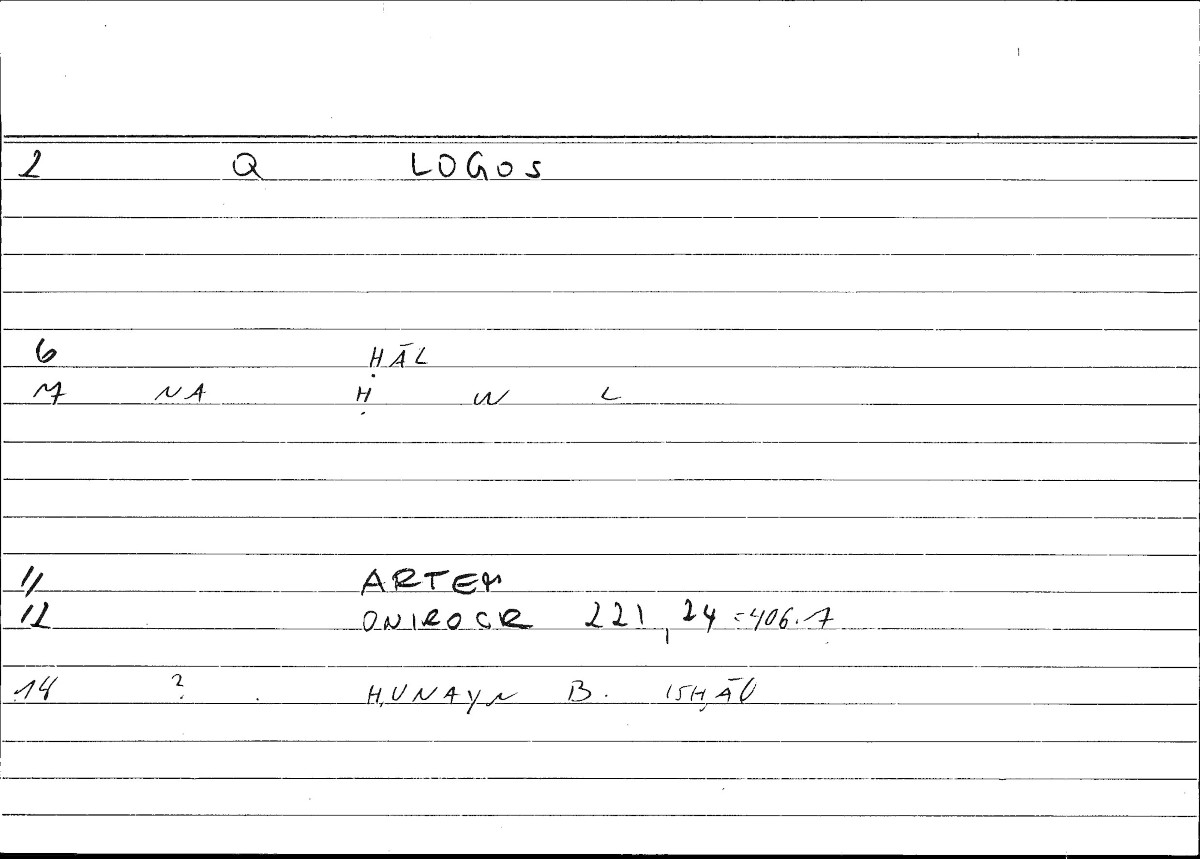 2 Q LOGOS
6 ḤĀL
7 NA Ḥ W L
11 ARTEM
12 ONIROCR 221,24 =406.7
14 ? . ḤUNAYN B. ISḤĀQ